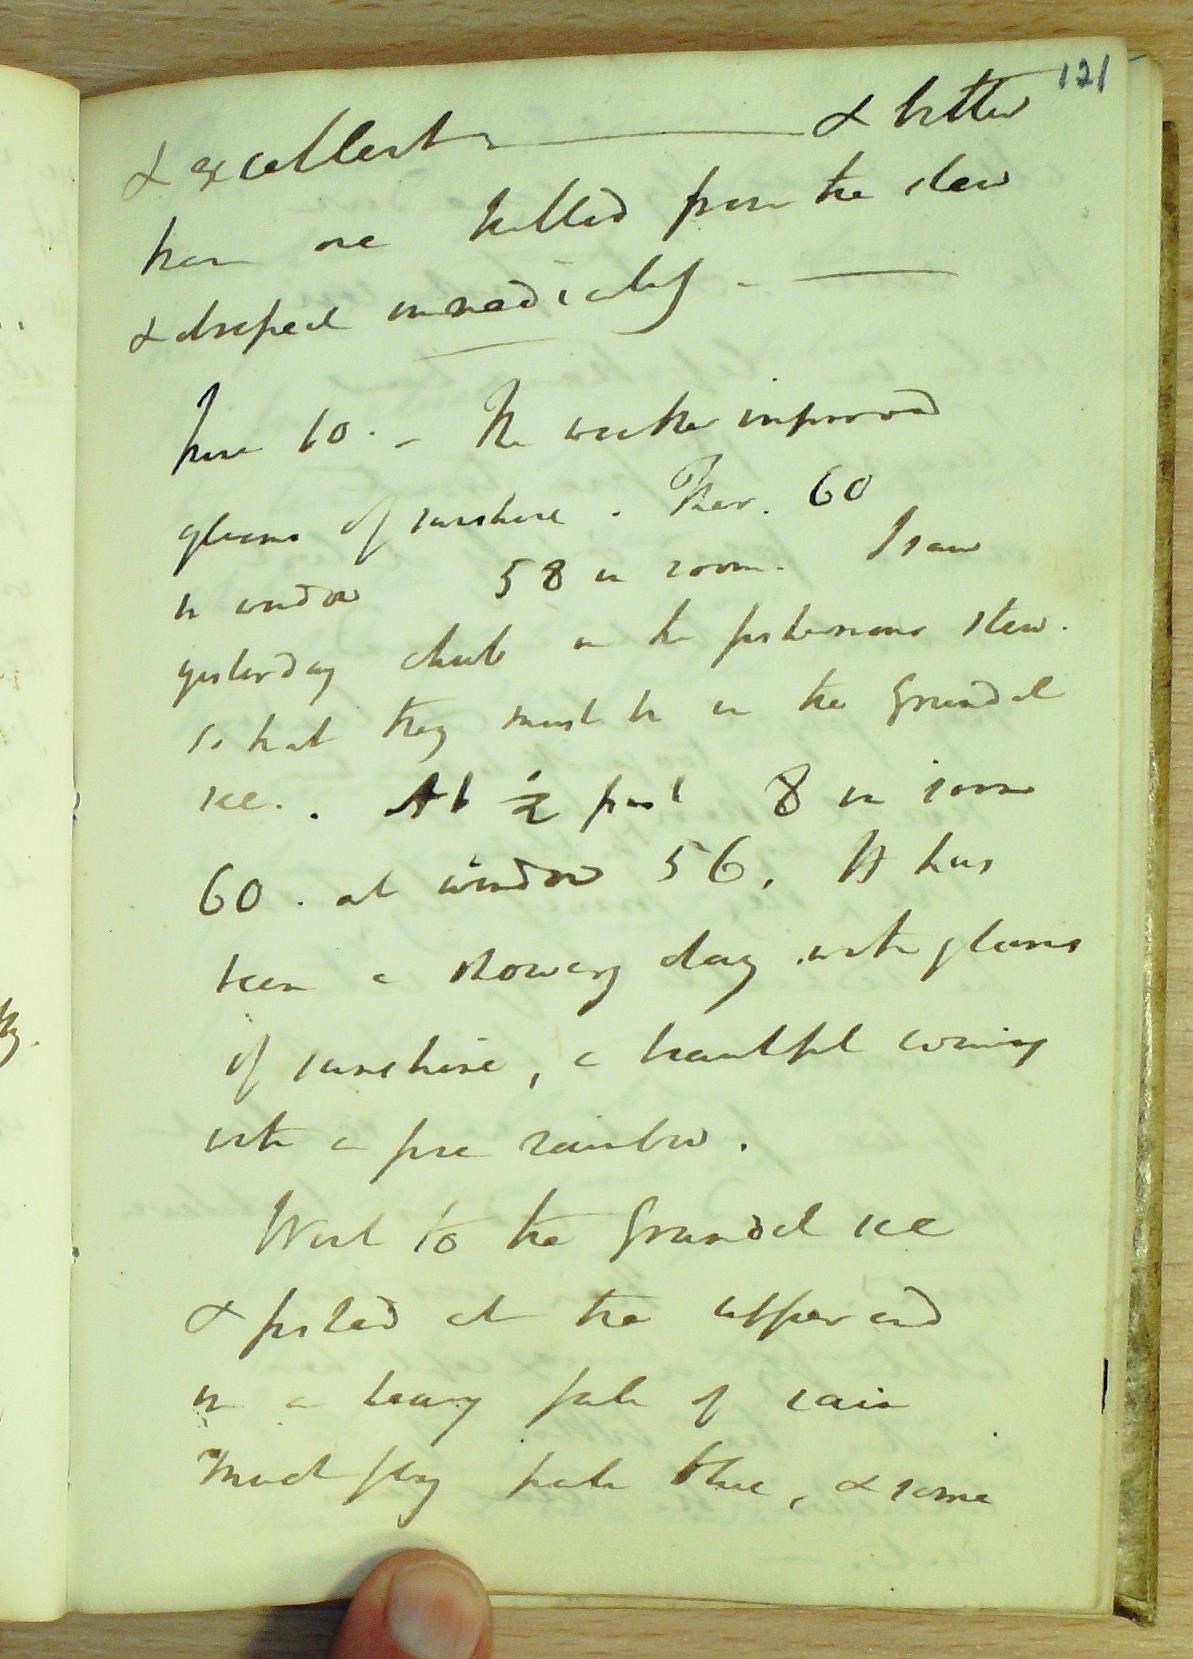 121
& excellent — & better
than one killed from the stew
& dressed immediately. —
June 10. – The weather improved
gleams of sunshine. Ther. 60
in window 58 in room. I saw
yesterday chub in the fishermans stew.
so that they must be in the Grundel
see. At ½ past 8 in room
60. at window 56. It has
been a showery day with gleams
of sunshine, a beautiful evening
with a fine rainbow.
Went to the Grundel see
& fished at the upper end
in a heavy fall of rain
Much fly pale blue, & some